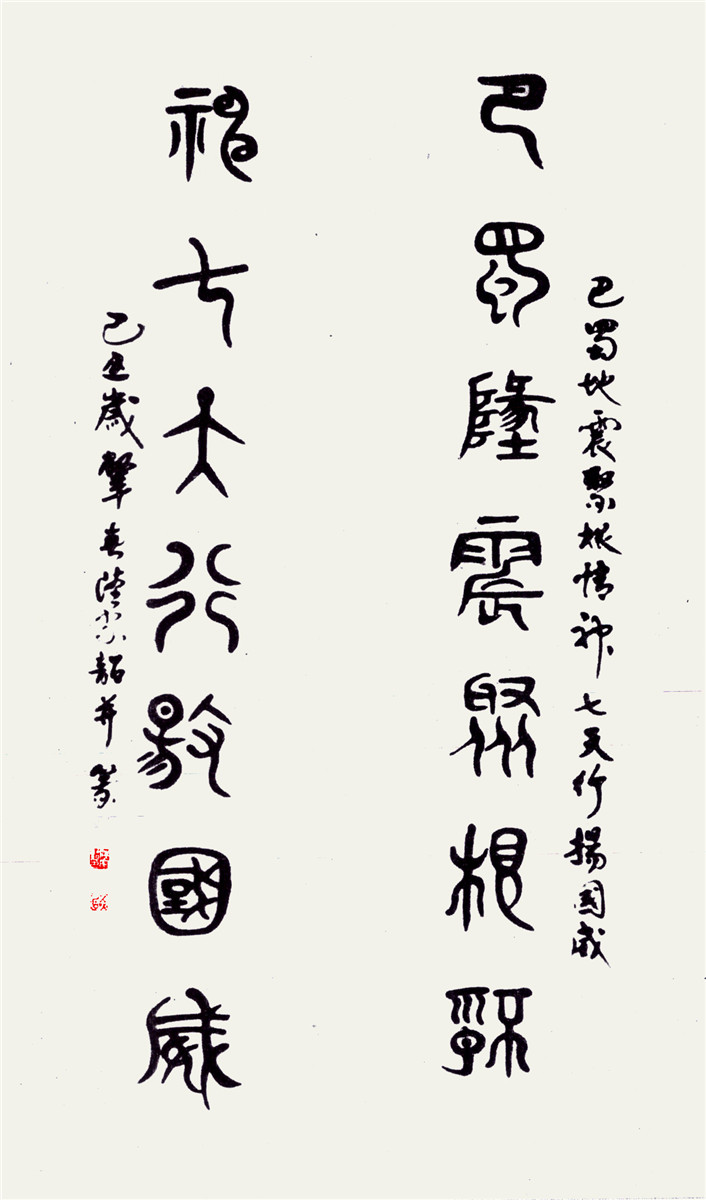 巴蜀地震聚根情神七天行揚國威
巴蜀地震聚根情
神七天行揚國威
己丑歲肇春陸韶并篆